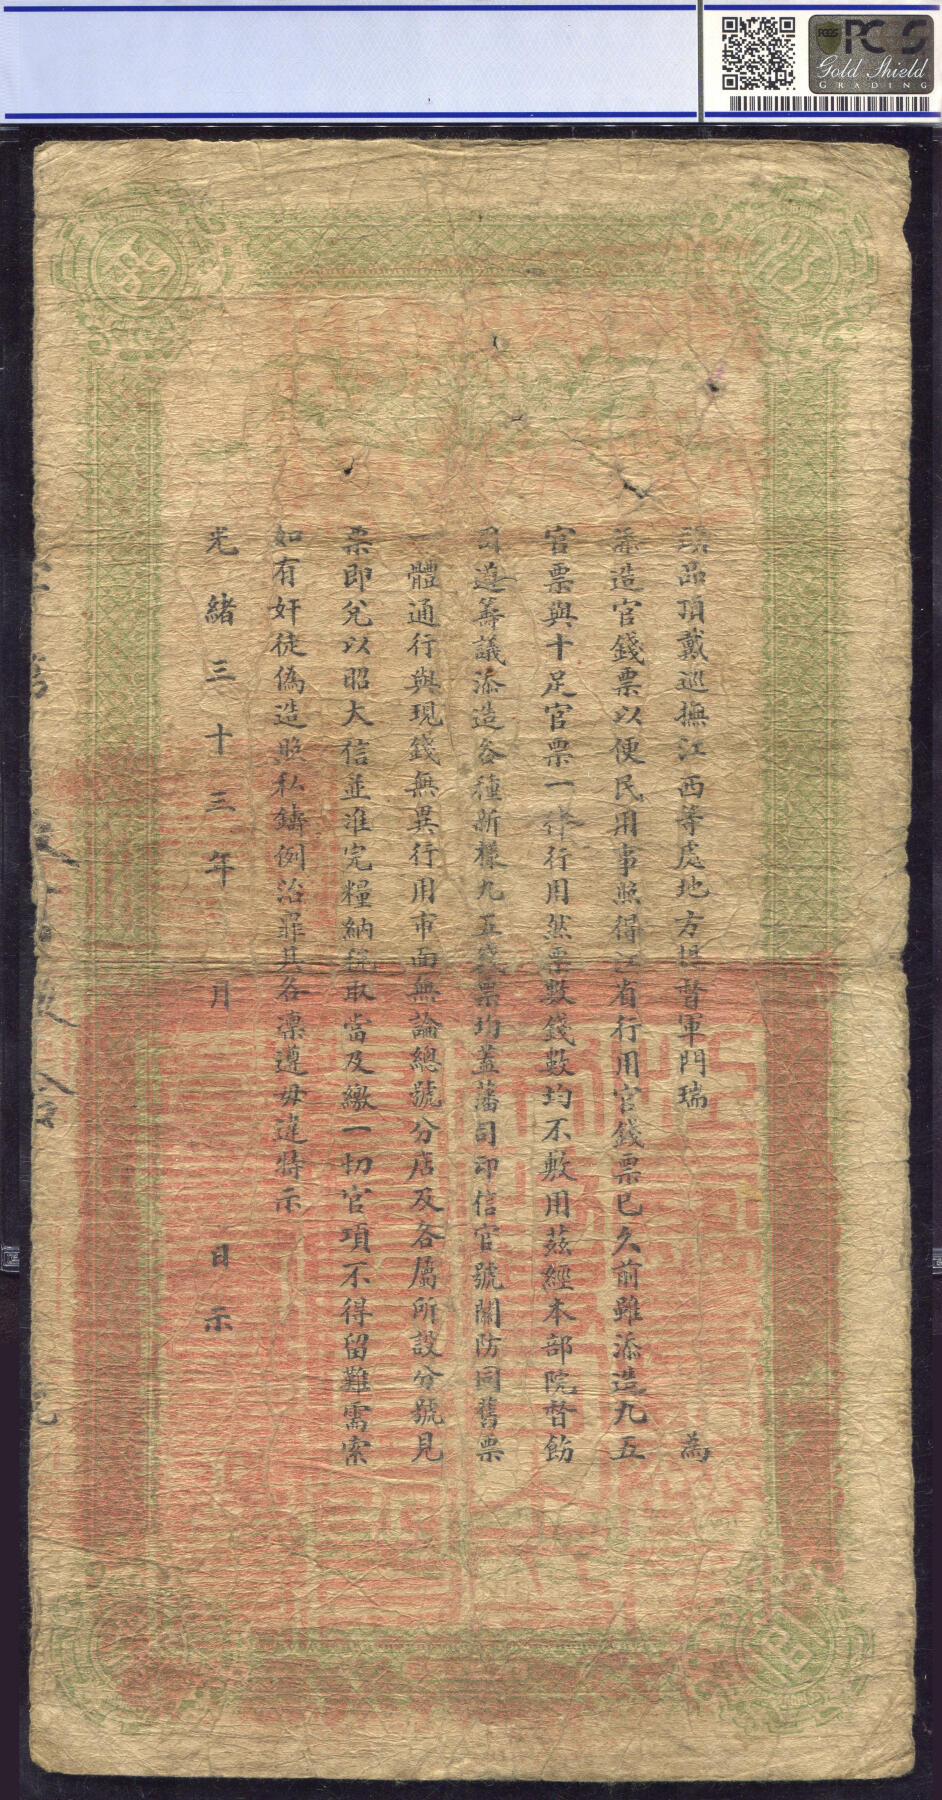 PCGS
Gold Shield
GRADING
頭品頂戴巡撫江西等處地方提督軍門瑞 為
添造官錢票以便民用事照得江省行用官錢票已久前雖添造九五
官票與十足官票一律行用然票數錢數均不敷用茲經本部院督飭
司道籌議添造各種新樣九五錢票均蓋藩司印信官號關防同舊票
一體通行與現錢無異行用市面無論總號分店及各屬所設分號見
票即兌以昭大信並准完糧納稅取當及繳一切官項不得留難需索
如有奸徒偽造照私鑄例治罪其各凜遵毋違特示
光緒三十三年 月 日示